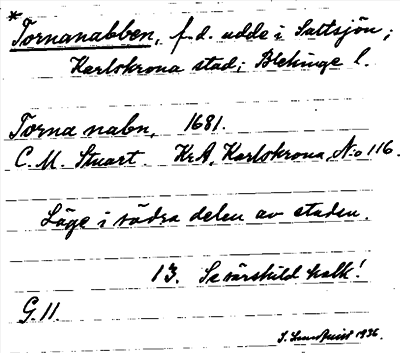 * Tornanabben, f.d. udde i Saltsjön;
Karlskrona stad; Blekinge l.
Torna nabn, 1681.
C. M. Stuart. KrA, Karlskrona, No 116.
Läge i södra delen av staden.
13. Se särskild kalk!
G. 11.
S. Lundquist 1936.